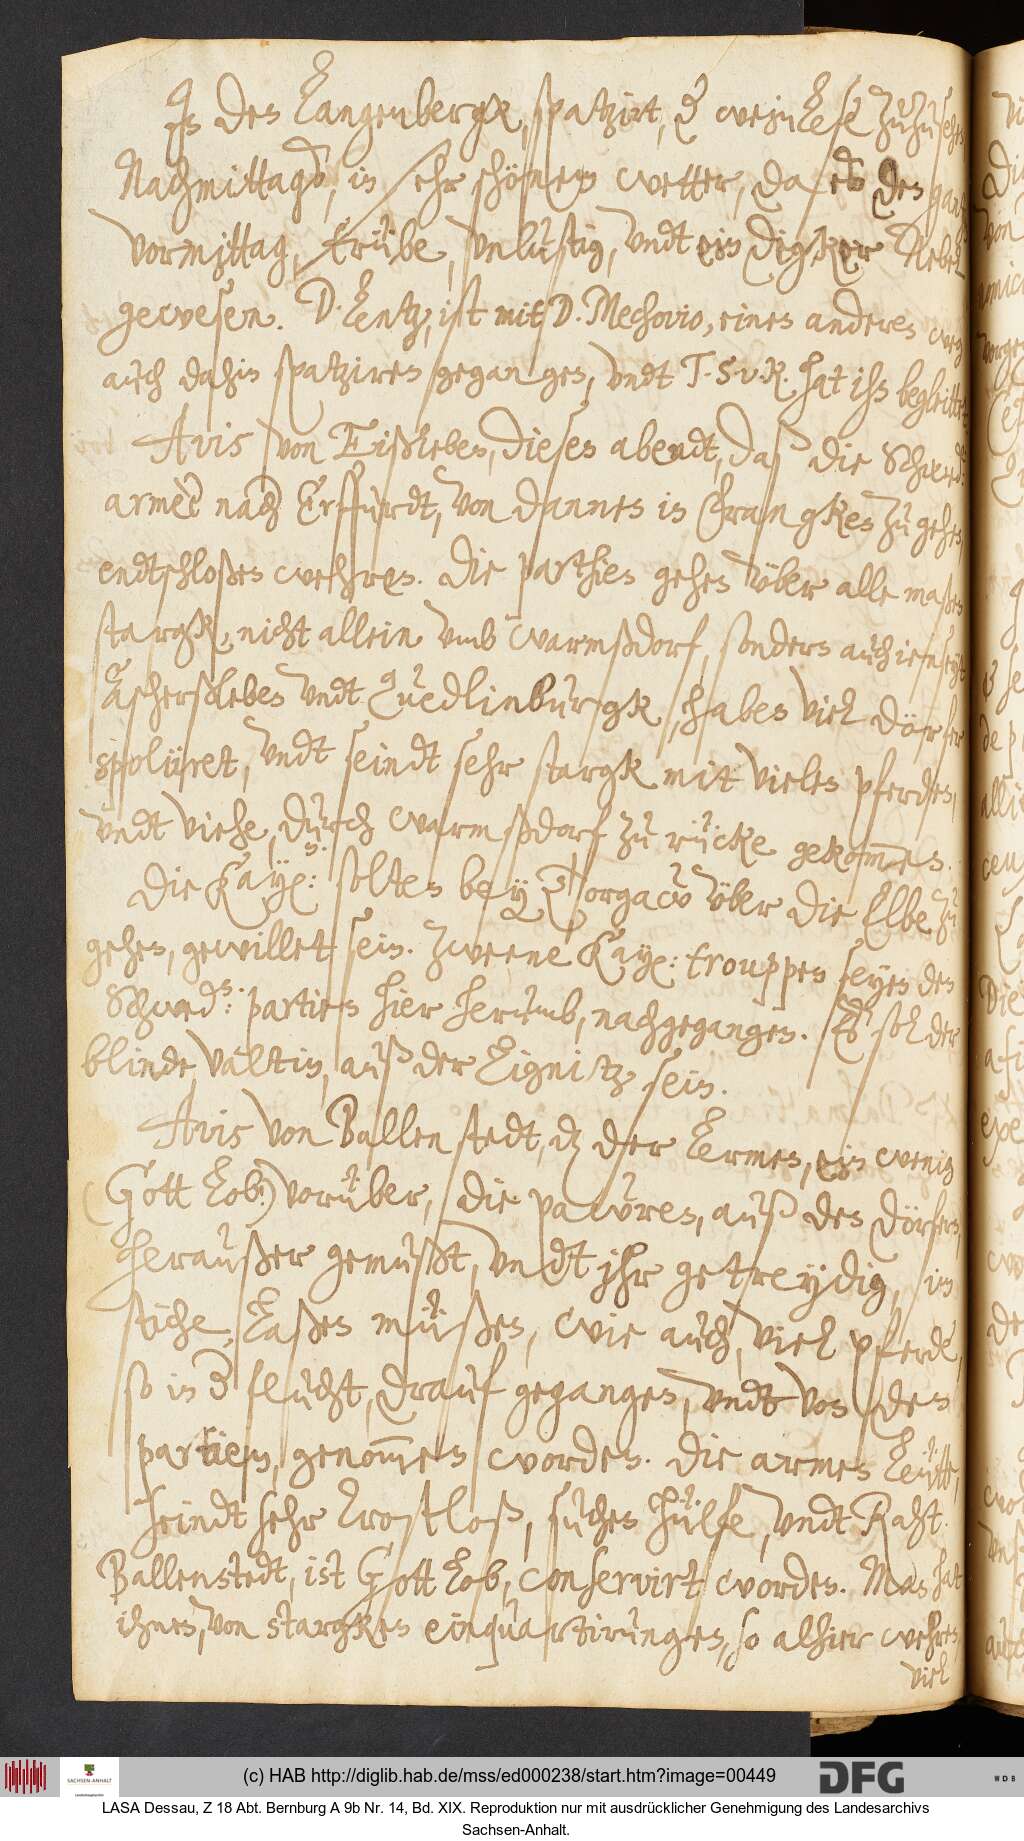 In den Langenbergk, spatzirt, d' weinlese zuzusehen,
Nachmittags, in sehr schönem wetter, da es den gantzen
vormittag, trübe, unlustig, undt ein digker Nebel
gewesen. D. Lentz, ist mit D. Mechovio, eines anderen weg
auch dahin spatziren gegangen, undt T. S. v. R. hat ihn begleittet.
Avis von Eißleben, dieses abendt, daß die Schwed:
armèe nach Erffurdt, von dannen in Francken zu gehen,
endtschloßen wehren. Die parthien gehen über alle maßen
stargk, nicht allein umb Warmßdorf, sondern auch jenseytt
Ascherßleben undt Quedlinburgk, haben viel dörfer
spoliiret, undt seindt sehr stargk mit vielen pferden,
undt viehe, durch Warmßdorf zu rücke gekommen.
Die Kay.en: solten bey Torgaw über die Elbe zu
gehen, gewillet sein. Zweene Kaye: trouppen seyen den
Schwed.en: partien hier herumb, nachgegangen. Es sol der
blinde Valtin, auß der Lignitz sein.
Avis von Ballenstedt, dz der Lermen, ein wenig
(Gott Lob!) vorüber, die pawren, auß den dörfern,
heraußer gemußt, undt ihr getreydig, im
stiche, laßen müßen, wie auch, viel pferde,
so in d' flucht, drauf gegangen, undt von den
partien, genommen worden. Die armen Leütte,
seindt sehr trostloß, suchen hülfe, undt Raht.
Ballenstedt, ist Gott lob, conservirt worden. Man hat
ihnen, von stargken einquartirungen, so alhier wehren,
viel
(c) HAB http://diglib.hab.de/mss/ed000238/start.htm?image=00449
SACHSEN-ANHALT
DFG
WDB
LASA Dessau, Z 18 Abt. Bernburg A 9b Nr. 14, Bd. XIX. Reproduktion nur mit ausdrücklicher Genehmigung des Landesarchivs
Sachsen-Anhalt.